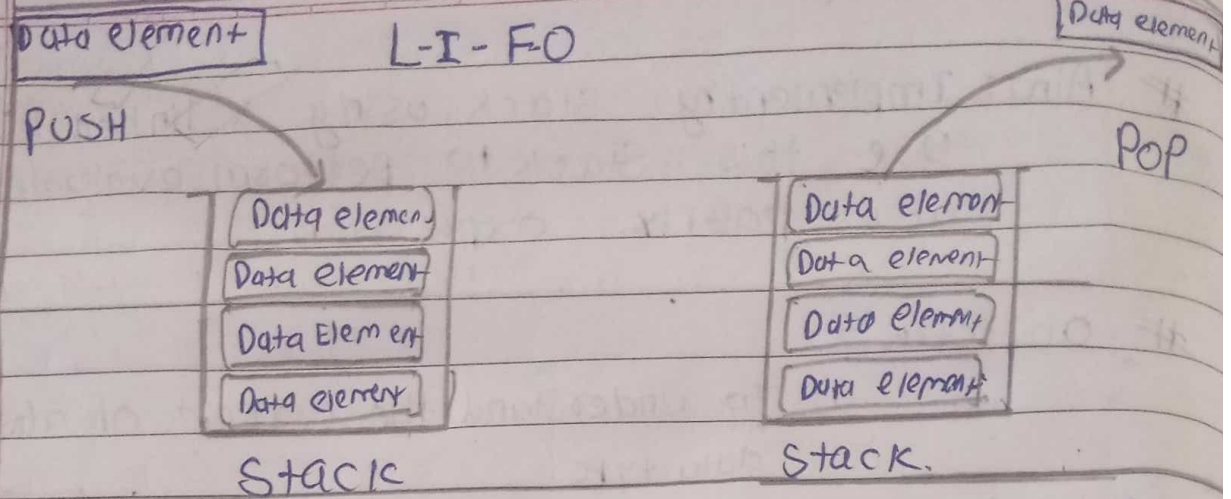 Data element L-I-FO Data element
PUSH
POP
Data elemen Data elemont
Data element Data elenent
Data Element Data elemnt
Data element Data element
Stack Stack.